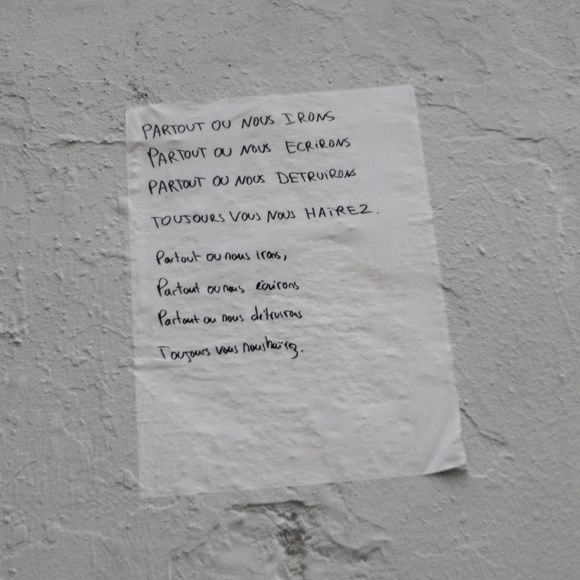 PARTOUT OU NOUS IRONS
PARTOUT OU NOUS ECRIRONS
PARTOUT OU NOUS DETRUIRONS
TOUJOURS VOUS NOUS HAÏREZ.
Partout ou nous irons,
Partout ou nous écrirons
Partout ou nous détruirons
Toujours vous nous haïrez.